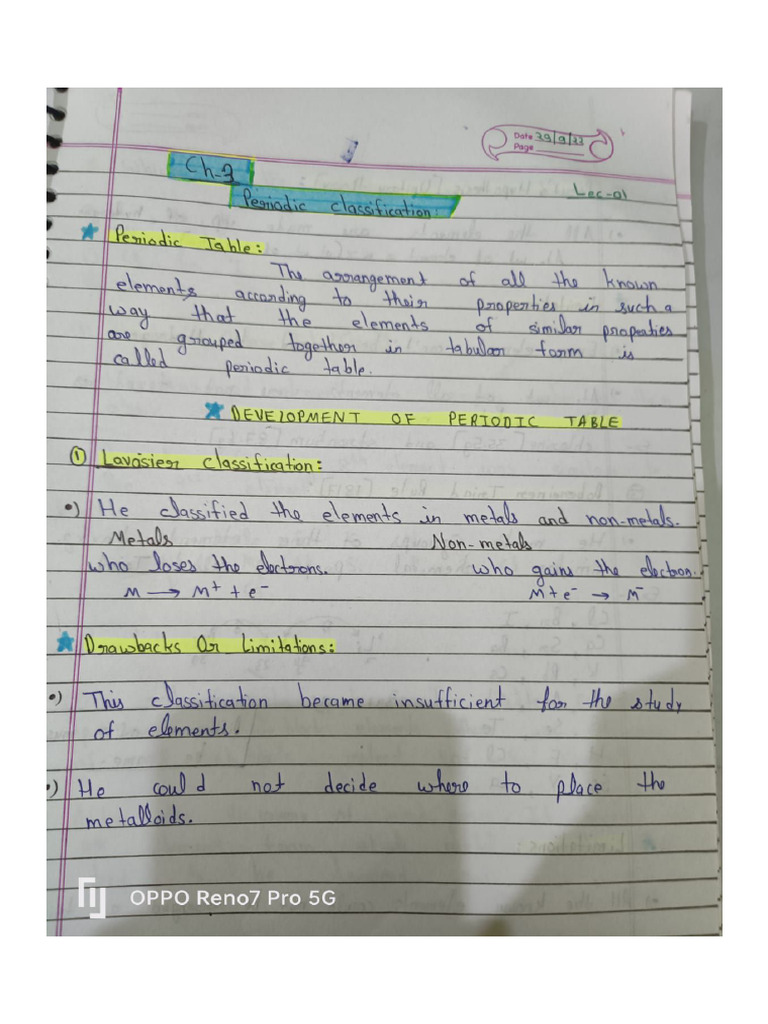 Date 29/9/22
Page
Ch-3
Lec-01
Periodic classification:
Periodic Table:
The arrangement of all the known
elements according to their properties in such a
way that the elements of similar properties
are grouped together in tabular form is
called periodic table.
DEVELOPMENT OF PERIODIC TABLE
① Lavosier classification:
•) He classified the elements in metals and non-metals.
Metals Non-metals
who loses the electrons. who gains the electron.
M → M⁺ + e⁻ M + e⁻ → M⁻
Drawbacks Or Limitations:
•) This classification became insufficient for the study
of elements.
•) He could not decide where to place the
metalloids.
OPPO Reno7 Pro 5G